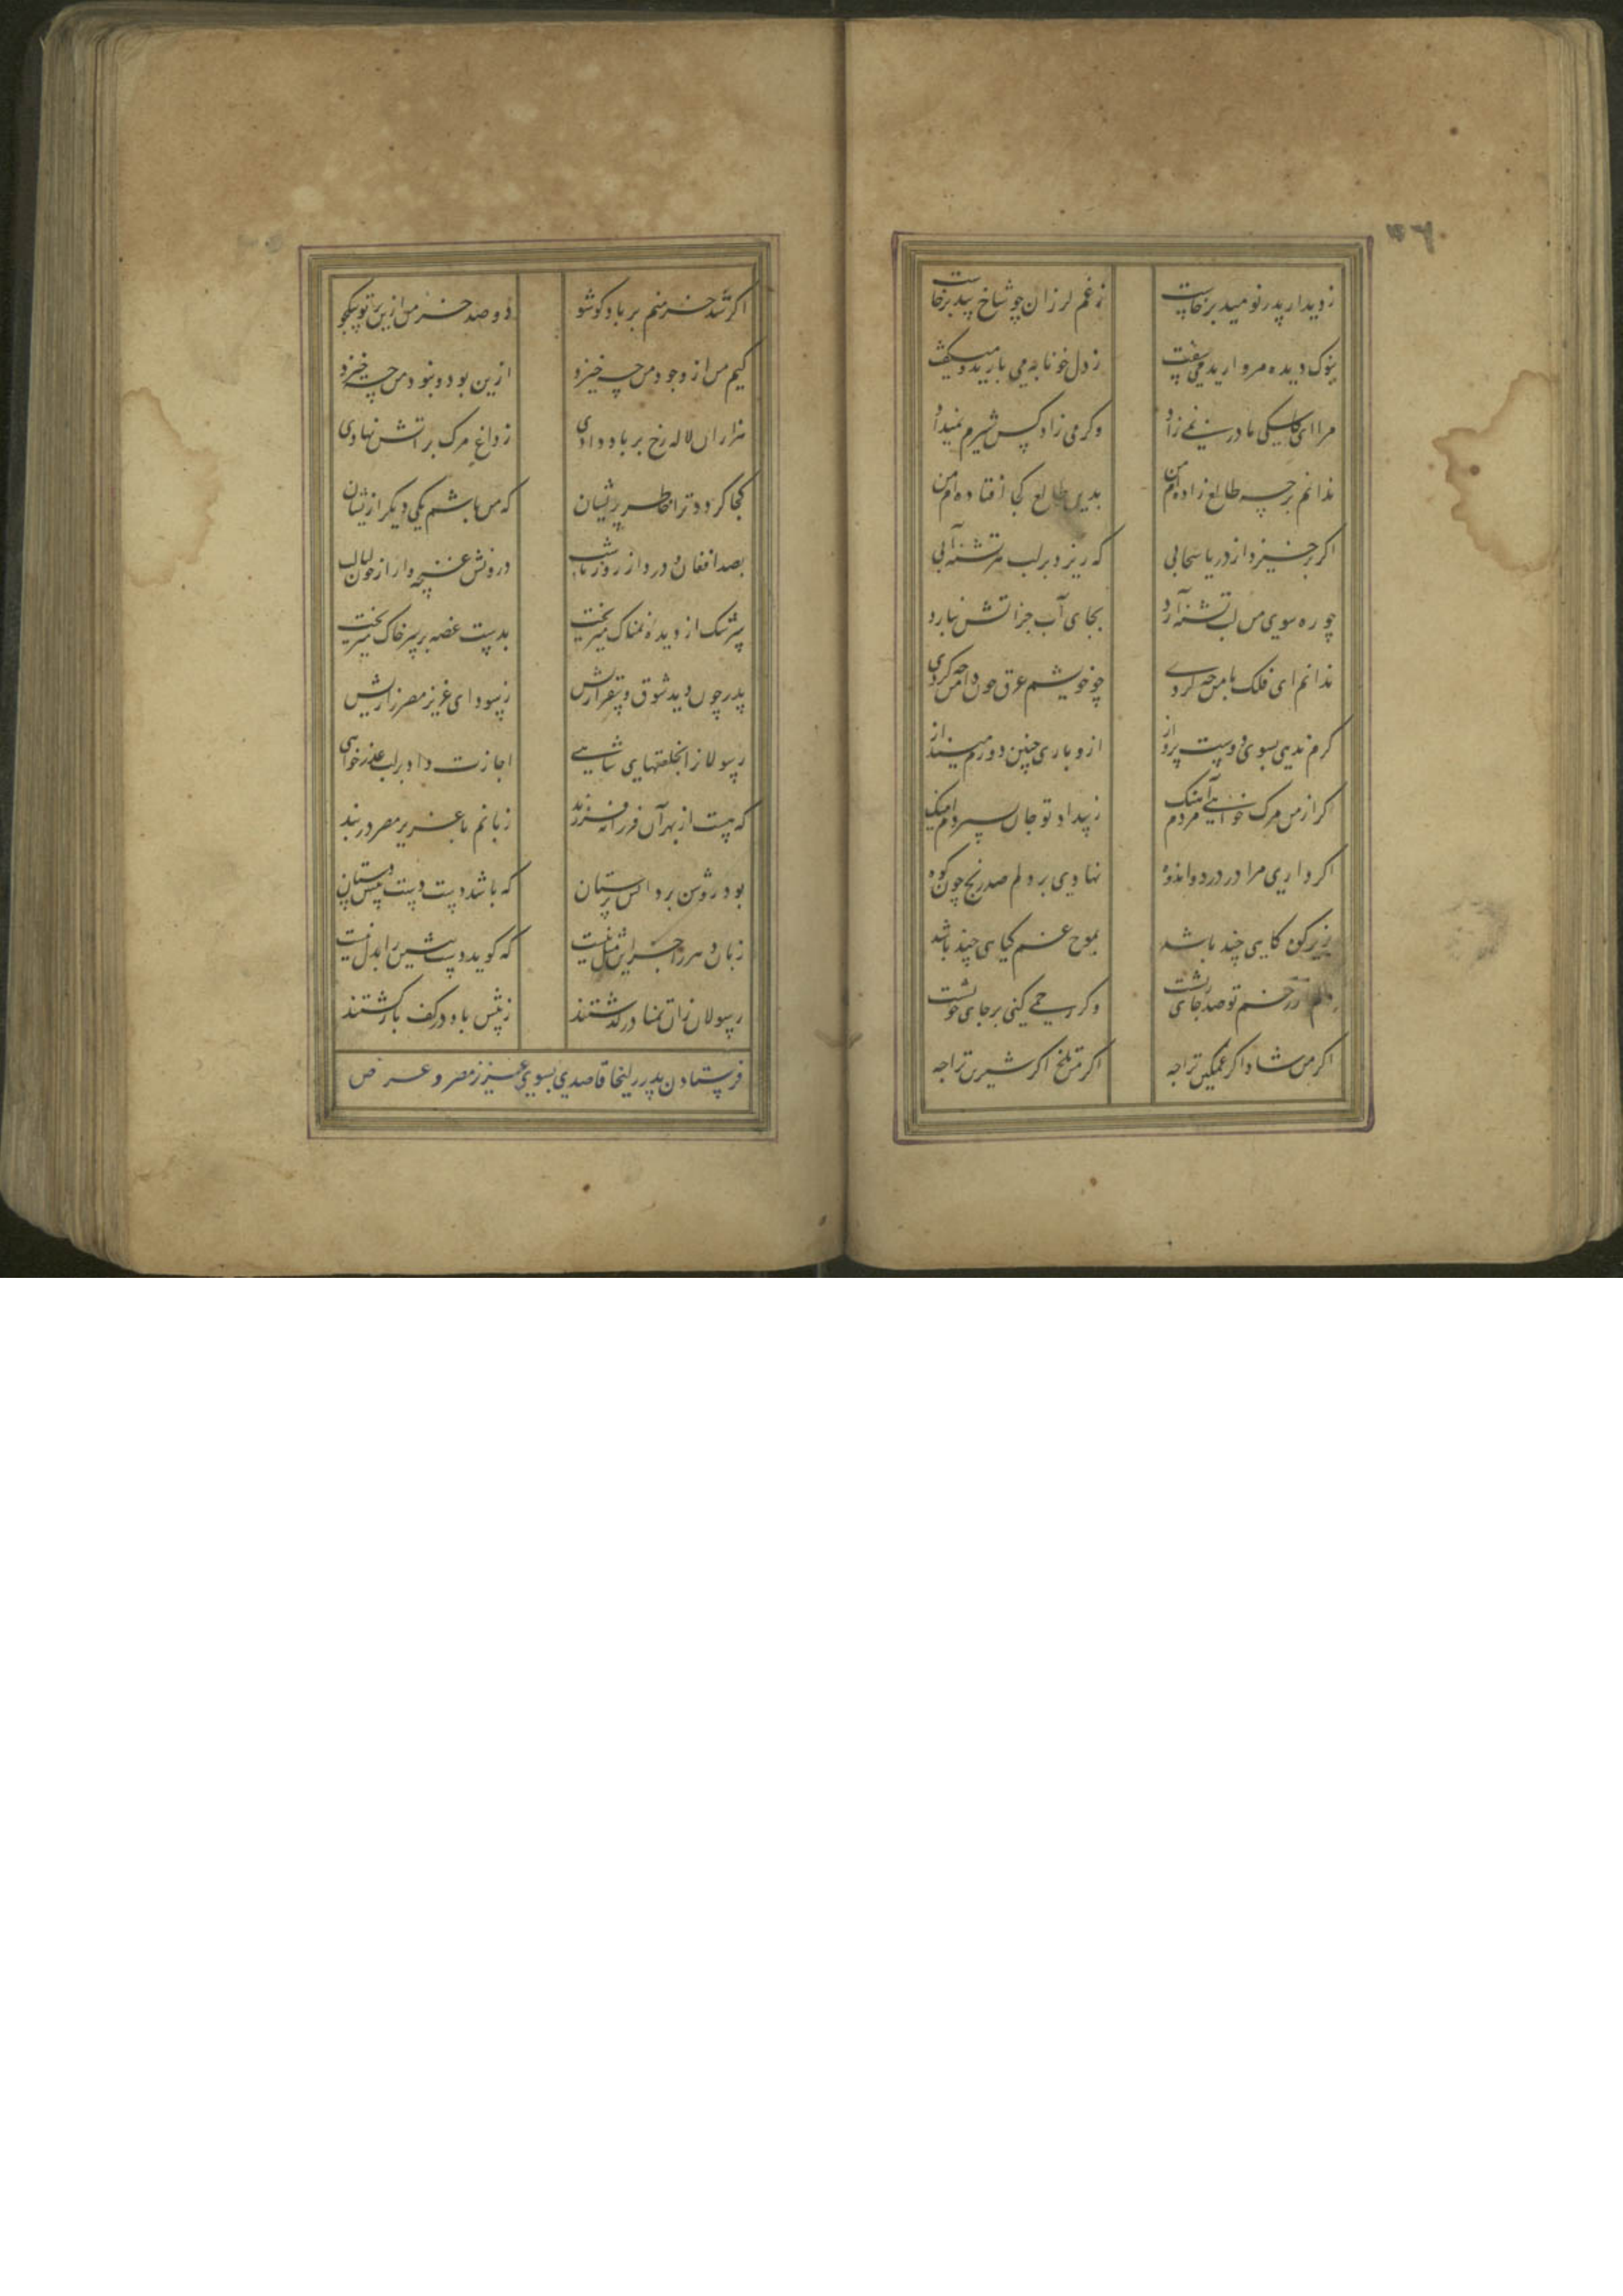 زدیدار پدر نومید برخاست زغم لرزان چو شاخ بید برخاست
بنوک دیده مروارید می سفت زدل خونابه می بارید و میگفت
مرا ای کاشکی مادر نمی زاد وکر می زاد کس شیرم نمیداد
ندانم بر چه طالع زاده ام من بدین طالع کجا افتاده ام من
اکر برخیزد از دریا سحابی که ریزد بر لب هر تشنه آبی
چو ره سوی من لب تشنه آرد بجای آب جز آتش نبارد
ندانم ای فلک با من چه کردی چو خویشم غرق خون دامن چه کردی
کرم ندی بسوی دوست پرواز ازو باری چنین دورم مینداز
اکر از من مرک خواهی آهنک مردم زبیداد تو جان سپردم اینک
اکر داری مرا در درد و اندوه نهادی بر دلم صد رنج چون کوه
بزیر کوه کاهی چند باشد بموج غم کیاهی چند باشد
دلم از زخم تو صد جای ریشت وکر رحمی کنی بر جای خویشت
اکر من شاد اکر غمکین ترا چه اکر من تلخ اکر شیرین ترا چه
اکر شد خرمنم بر باد کو شو دو صد خرمن ازین بر تو بیک جو
کیم من از وجود من چه خیزد ازین بود و نبود من چه خیزد
هزاران لاله رخ بر باد دادی زداغ مرک بر آتش نهادی
کجا کردد ترا خاطر پریشان که من باشم یکی دیکر ازیشان
بصد افغان و درد از روز تا شب درونش غنچه وار از خون لبالب
سرشک از دیده نمناک میریخت بدست غصه بر سر خاک میریخت
پدر چون دید شوق و بیقرارش زسودای عزیز مصر زارش
رسولانرا بخلعتهای شاهی اجازت داد بر لب عذرخواهی
که هست از بهر آن فرزانه فرزند زبانم با عزیز مصر در بند
بود روشن بر دانش پرستان که باشد دست دست پیش دستان
زبان دهر را به زین مثل نیست که کوید دست پیشین را بدل نیست
رسولان زان تمنا در کذشتند زپیش باد در کف بازکشتند
فرستادن پدر زلیخا قاصدی بسوی عزیز مصر و عرض